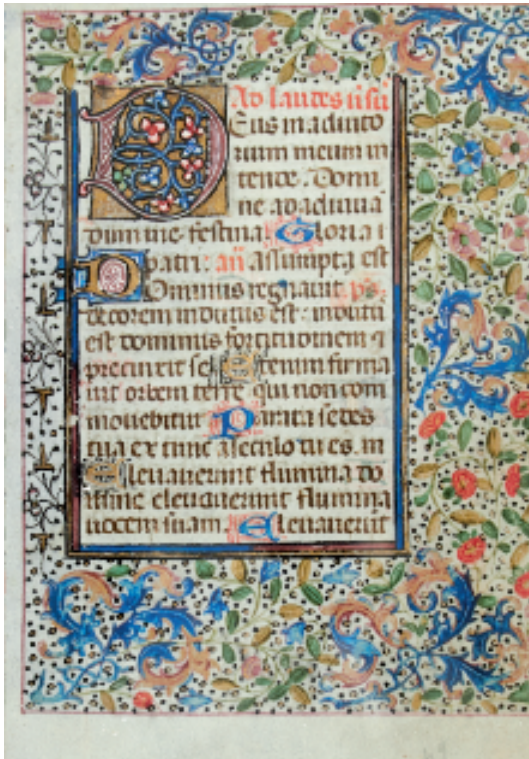 Ad laudes usu
Deus in adiuto
rium meum in
tende. Domi
ne ad adiuua
dum me festina Gloria
patri: an assumpta est
Dominus regnauit ps
decorem indutus est: induti
est dominus fortitudinem
precinxit se Etenim firma
uit orbem terre qui non com
mouebitur Parata sedes
tua ex tunc aseculo tu es. in
Eleuauerunt flumina do
mine eleuauerunt flumina
uocem suam. Eleuauerūt